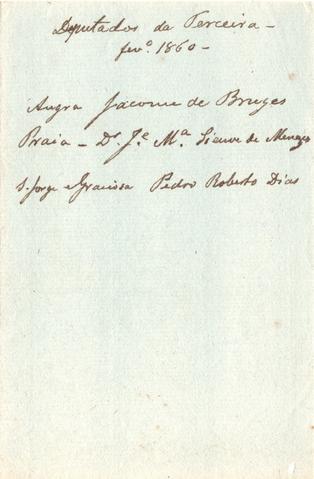 Deputados da Terceira –
fevº. 1860 –
Angra Jacome de Bruges
Praia – Dr. Jº. Mª Sieuve de Menezes
S. Jorge e Graciosa Pedro Roberto Dias